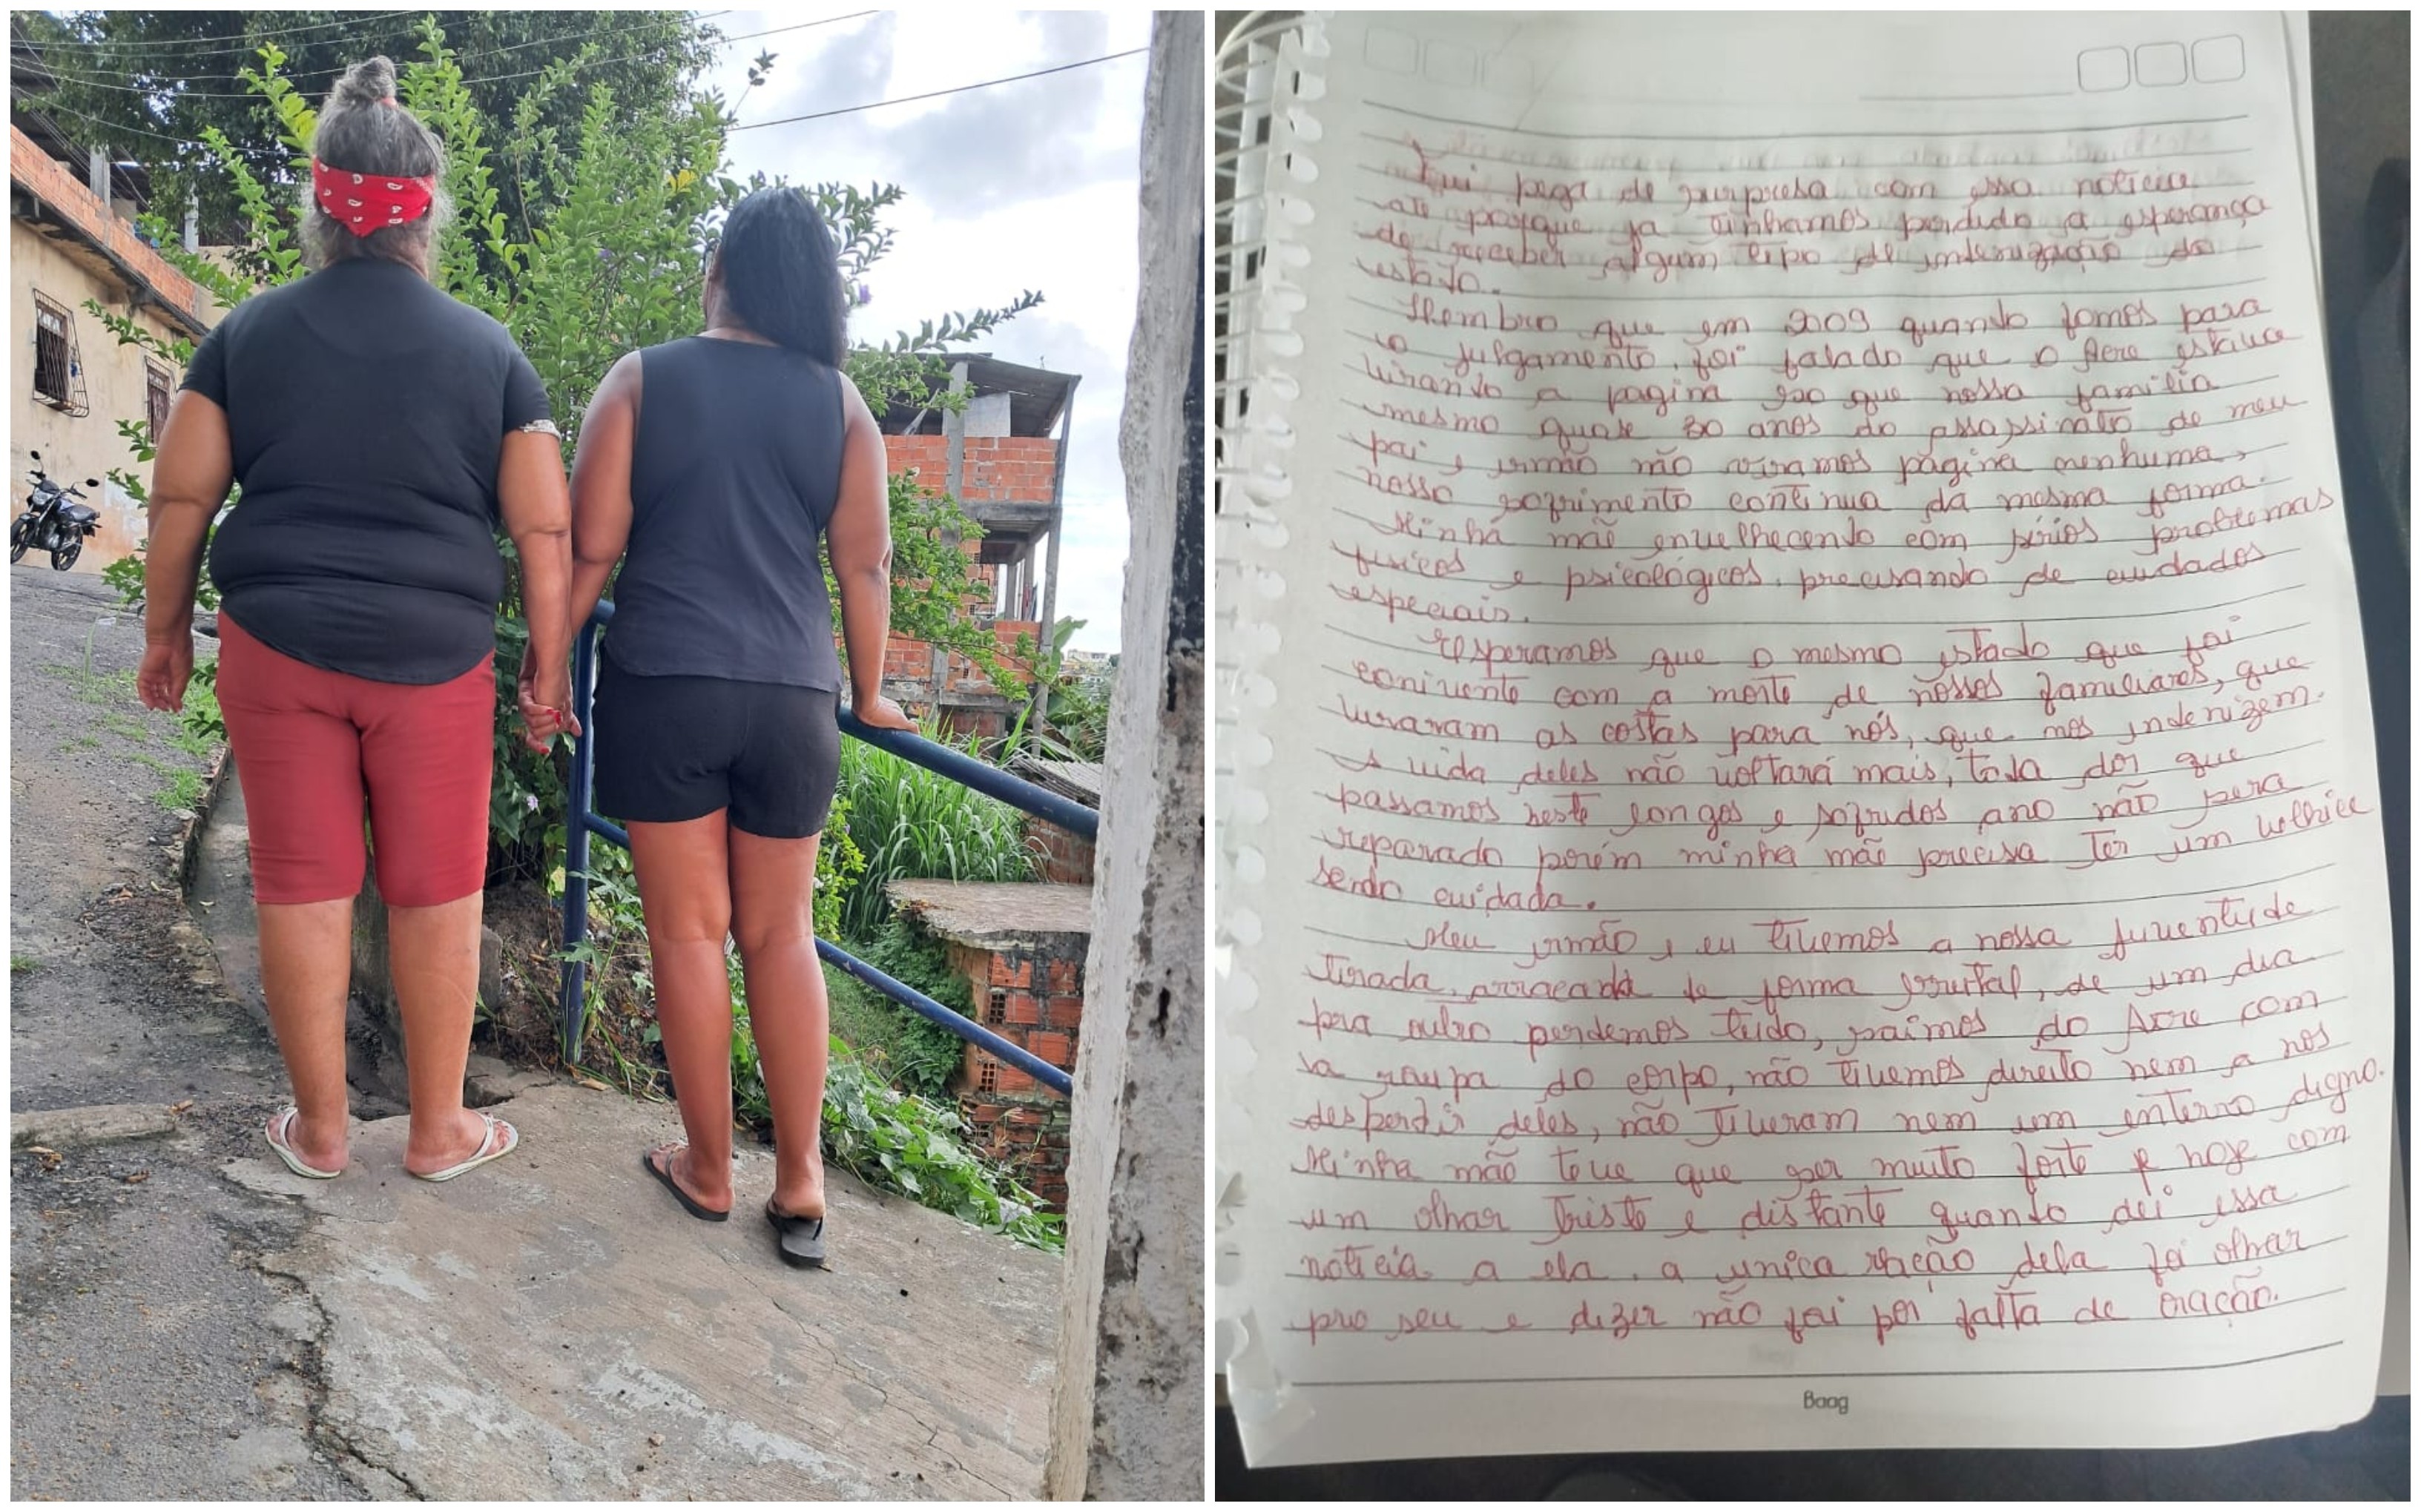 Fui pega de surpresa com essa noticia
até porque ja tinhamos perdido a esperança
de receber algum tipo de indenização do
estado.
Lembro que em 2009 quando fomos para
o julgamento, foi falado que o Acre estava
virando a pagina só que nossa familia
mesmo quase 30 anos do assassinato de meu
pai e irmão não viramos pagina nenhuma,
nosso sofrimento continua da mesma forma.
Minha mãe envelhecendo com sérios problemas
fisicos e psicologicos, precisando de cuidados
especiais.
Esperamos que o mesmo estado que foi
conivente com a morte de nossos familiares, que
viraram as costas para nós, que nos indenizem.
A vida deles não voltará mais, toda dor que
passamos neste longos e sofridos ano não sera
reparado porém minha mãe precisa ter um velhice
sendo cuidada.
Meu irmão e eu tivemos a nossa juventude
tirada, arracada de forma brutal, de um dia
pra outro perdemos tudo, saimos do Acre com
a roupa do corpo, não tivemos direito nem a nos
despedir deles, não tiveram nem um enterro digno.
Minha mãe teve que ser muito forte e hoje com
um olhar triste e distante quando dei essa
noticia a ela, a unica reação dela foi olhar
pro seu e dizer não foi por falta de oração.
Baag